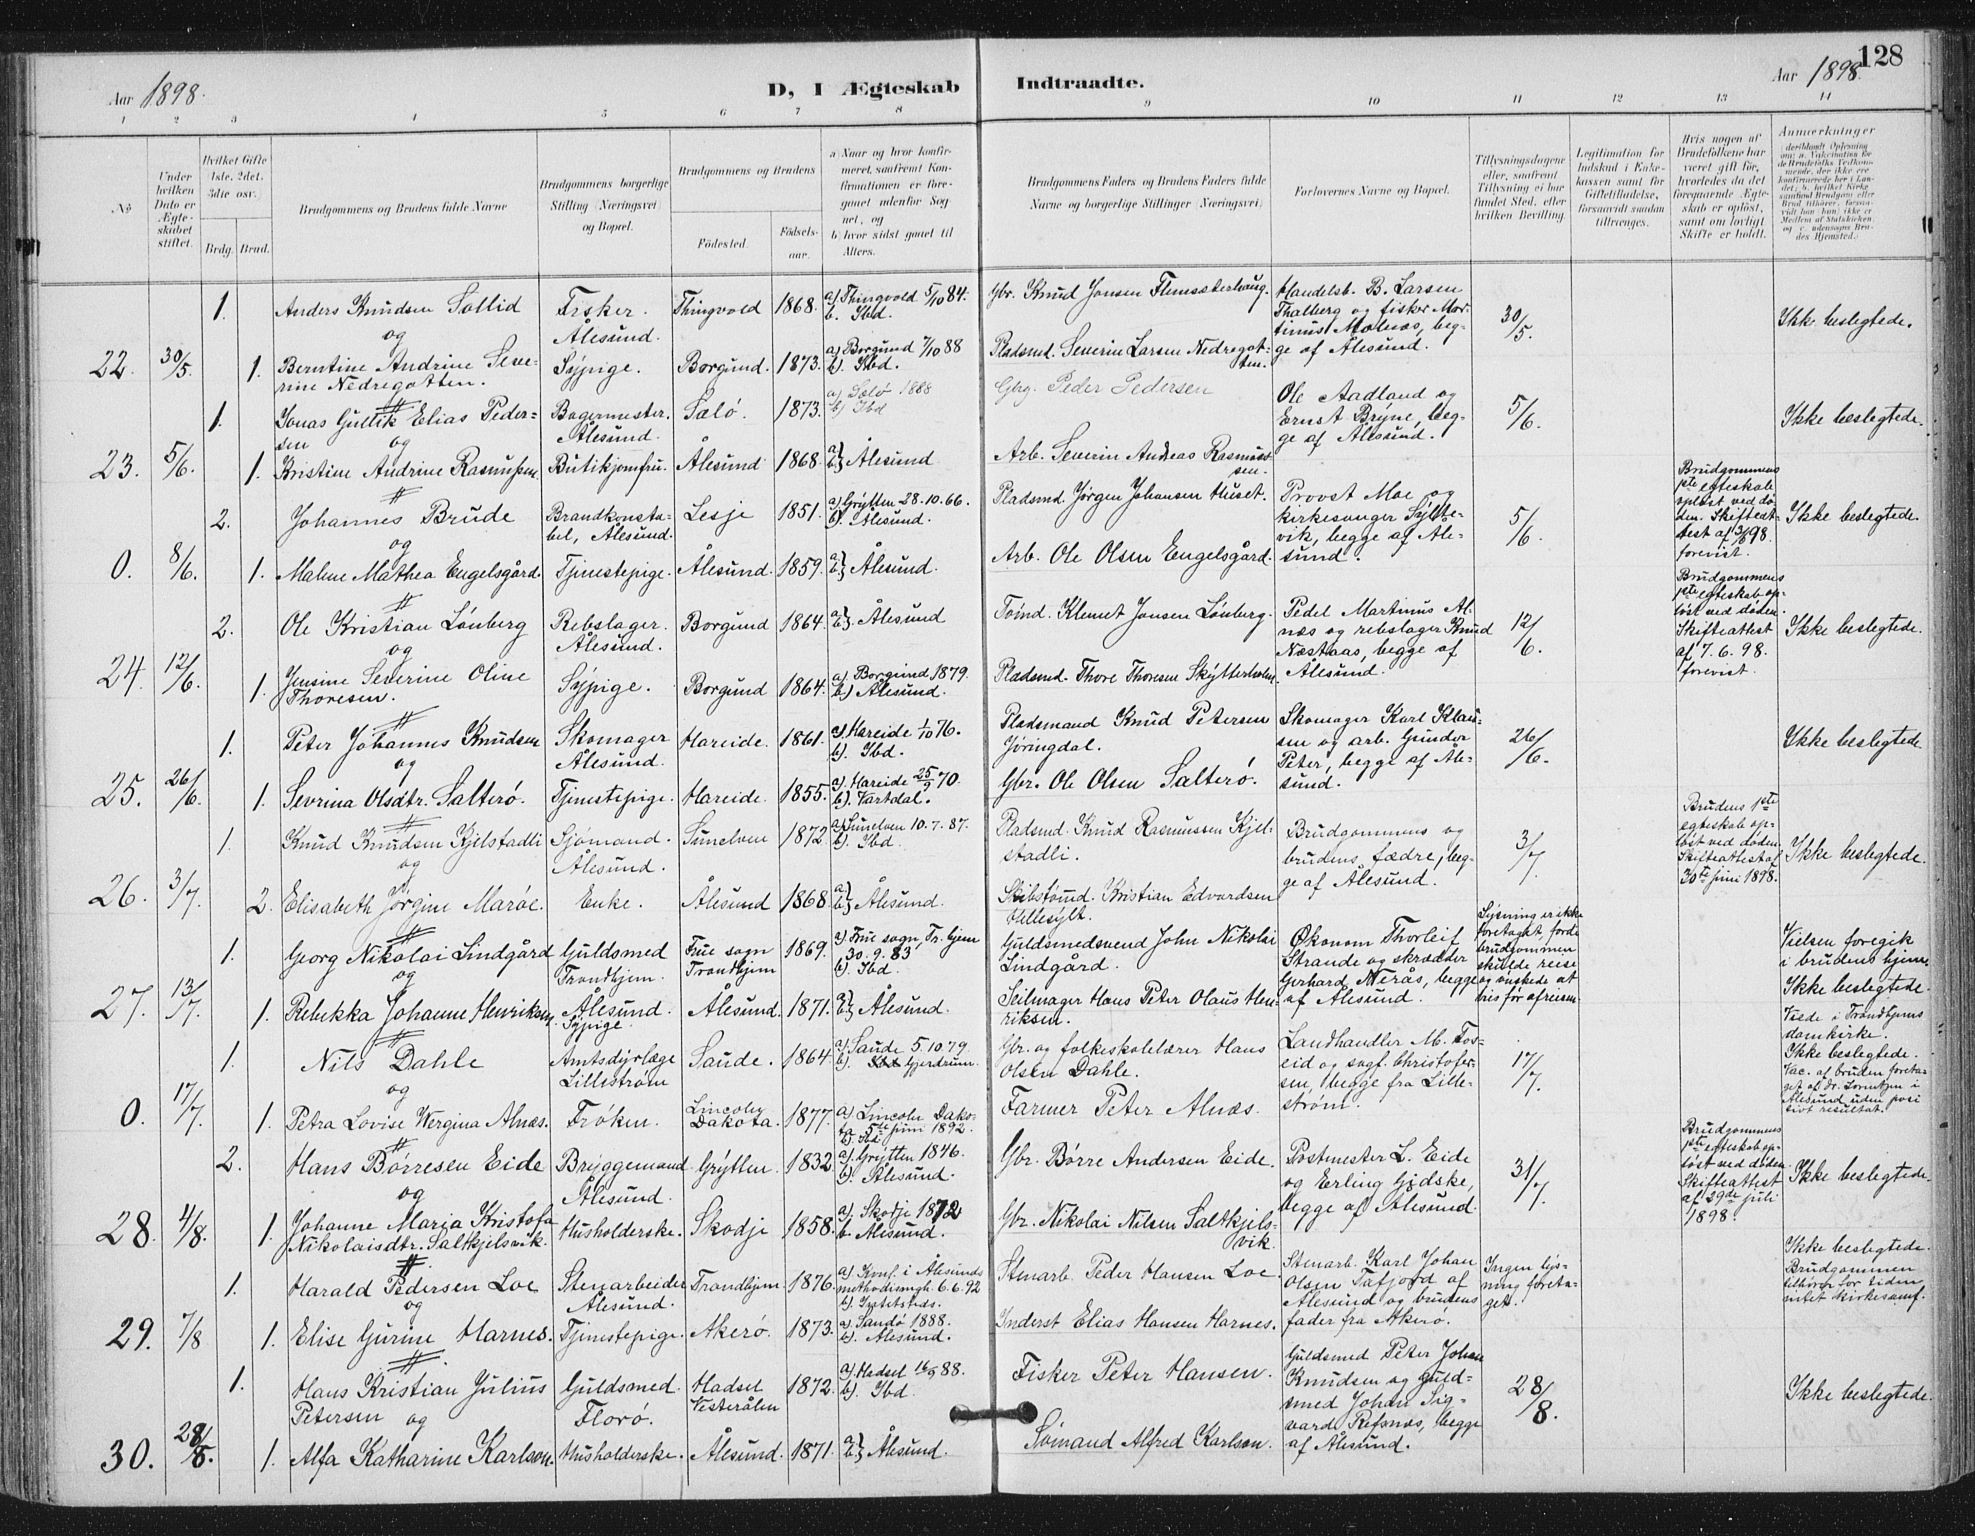 128
Aar 1898.
D, I Ægteskab Indtraadte.
Aar 1898.
1 2 3 4 5 6 7 8 9 10 11 12 13 14
No
Under hvilken Dato er Ægteskabet stiftet.
Hvilket Gifte 1ste, 2det, 3die osv.
Brdg. Brud.
Brudgommens og Brudens fulde Navne
Brudgommens borgerlige Stilling (Næringsvei) og Bopæl.
Brudgommens og Brudens
Fødested.
Fødselsaar.
a Naar og hvor konfirmeret, saafremt Konfirmationen er foregaaet udenfor Sognet, og
b hvor sidst gaaet til Alters.
Brudgommens Faders og Brudens Faders fulde Navne og borgerlige Stillinger (Næringsvei)
Forlovernes Navne og Bopæl.
Tillysningsdagene eller, saafremt Tillysning ei har fundet Sted, efter hvilken Bevilling.
Legitimation for Indskud i Enkekassen samt for Giftetilladelse, forsaavidt saadan tiltrænges.
Hvis nogen af Brudefolkene har været gift før, hvorledes da det foregaaende Ægteskab er opløst, samt om lovligt Skifte er holdt.
Anmerkninger
1. Anders Knudsen Sollid Fisker. Ålesund. Thingvold 1868. a) Thingvold 5/10 84. b. Ibd. Gbr. Knud Jonsen Flemsæterhaug. Handelsb. B. Larsen Thalberg og fisker Martinus Molnæs, begge af Ålesund. 30/5. Ikk. beslegtede.
og
22. 30/5 1. Berntine Andrine Severine Nedregotten. Sypige. Borgund. 1873. a) Borgund 7/10 88 b). Ibd. Pladsmd. Severin Larsen Nedregotten.
1. Jonas Gullik Elias Pedersen Bagermester. Ålesund. Sælø. 1873. a) Sælø 1888 b) Ibd Gbrg. Peder Pedersen Ole Aadland og Ernst Bryne, begge af Ålesund. 5/6. Ikke beslegtede.
og
23. 5/6. 1. Kristine Andrine Rasmussen Butikjomfru. Ålesund 1868. a) b) Ålesund Arb. Severin Andreas Rasmussen.
2. Johannes Brude Brandkonstabel, Ålesund. Lesje 1851. a) Grytten 28.10.66. b). Ålesund. Pladsmd. Jørgen Johansen Huset. Provst Moe og kirkesanger Syltevik, begge af Ålesund. 5/6. Brudgommens 1ste egteskab opløst ved døden. Skifteattest af 3/6 98. forevist. Ikke beslegtede.
og
0. 8/6. 1. Malene Mathea Engelsgård. Tjenestepige. Ålesund. 1859. a) b) Ålesund. Arb. Ole Olsen Engelsgård.
2. Ole Kristian Lønberg Rebslager. Ålesund. Borgund 1864. a) b). Ålesund Tømd. Klemet Jonsen Lønberg. Pedel Martinus Alnæs og rebslager Knud Næstaas, begge af Ålesund. 12/6. Brudgommens 1ste egteskab opløst ved døden. Skifteattest af 7.6.98. forevist. Ikke beslegtede.
og
24. 12/6. 1. Jensine Severine Oline Thoresen. Sypige. Borgund 1864. a) Borgund 1879. b) Ålesund. Pladsmd. Thore Thoresen Skytterholm.
1. Peter Johannes Knudsen Skomager Ålesund. Hareide. 1861. a) Hareide 1/10 76. b). Ibd. Pladsmand Knud Petersen Jøringdal. Skomager Karl Klausen og arb. Gunder Peter, begge af Ålesund. 26/6. Ikke beslegtede
og
25. 26/6. 1. Sevrina Olsdtr. Salterø. Tjenestepige. Hareide. 1855. a) Hareide 25/9 70. b). Vartdal. Gbr. Ole Olsen Salterø.
1. Knud Knudsen Kjelstadli Sjømand. Ålesund. Sunelven 1872. a) Sunelven 10.7.87. b). Ibd. Pladsmd. Knud Rasmussen Kjelstadli. Brudgommens og brudens fædre, begge af Ålesund. 3/7. Brudens 1ste egteskab opløst ved døden. Skifteattest af 30te juni 1898. Ikke beslegtede.
og
26. 3/7. 2. Elisabeth Jørgine Marøe. Enke. Ålesund 1868. a) b) Ålesund. Skibstømd. Kristian Edvardsen Hellesylt.
1. Georg Nikolai Lindgård Guldsmed Trondhjem. Frue sogn Trondhjem 1869. a) Frue sogn, Tr.hjem 30.9.83 b). Ibd. Guldsmedsvend John Nikolai Lindgård. Økonom Thorleif Strande og skrædder Gerhard Nerås, begge af Ålesund. Lysning er ikke foretaget fordi brudgommen skulde reise og ønskede at vies før afreisen. Vielsen foregik i brudens hjem. Ikke beslegtede.
og
27. 13/7. 1. Rebekka Johanne Henriksen Ålesund. Sypige. Ålesund. 1871. a) b) Ålesund. Seilmager Hans Peter Olaus Henriksen.
1. Nils Dahle Amtsdyrlæge Lillestrøm Saude. 1864 a) Saude 5.10.79. b). Gjerdrum. Gbr. og folkeskolelærer Hans Olsen Dahle. Landhandler M. Foseid og sagf. Christofersen, begge fra Lillestrøm. 17/7. Viede i Trondhjems domkirke. Ikke beslegtede. Vac. af bruden foretaget af dr. Lorentzen i Ålesund uden positivt resultat.
og
0. 17/7. 1. Petra Lovise Wergina Alnæs. Frøken. Lincoln Dakota. 1877. a) Lincoln Dakota 5te juni 1892. b. Ibd. Farmer Peter Alnæs.
2. Hans Børresen Eide Bryggemand Ålesund. Grytten. 1832. a) Grytten 1846. b). Ålesund. Gbr. Børre Andersen Eide. Postmester L. Eide og Erling Gjdske, begge af Ålesund. 31/7. Brudgommens 1ste egteskab opløst ved døden. Skifteattest af 29de juli 1898. Ikke beslegtede.
og
28. 4/8. 1. Johanne Maria Kristofa Nikolaisdtr. Saltkjelsvik. Husholderske. Skodje 1858. a). Skodje 1872 b. Ålesund. Gbr. Nikolai Nilsen Saltkjelsvik.
1. Harald Pedersen Loe Stenarbeider Ålesund. Trondhjem. 1876. a). Konf. i Ålesunds methodismgh. 6.6.92 b). Stenarb. Peder Hansen Loe Stenarb. Karl Johan Olsen Tafjord af Ålesund og brudens fader fra Akerø. Ingen lysning foretaget. Ikke beslegtede. Brudgommen tilhører for tiden intet kirkesamf.
og
29. 7/8 1. Elise Gurine Harnes. Tjenestepige. Akerø. 1873. a). Sandø 1888. b). Ålesund. Inderst Elias Hansen Harnes.
1. Hans Kristian Julius Petersen Guldsmed. Florø. Hadsel Vesterålen 1872. a) Hadsel 16/9 88. b). Ibd. Fisker Peter Hansen. Guldsmed Peter Johan Knudsen og guldsmed Johan Sigvard Refsnæs, begge af Ålesund. 28/8. Ikke beslegtede.
og
30. 28/8. 1. Alfa Katharine Karlson. Husholderske. Ålesund. 1871. a) b) Ålesund. Sømand Alfred Karlson.